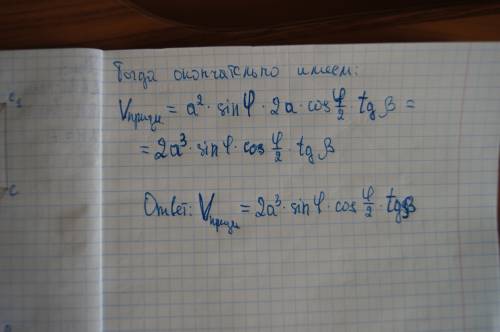 C₁
Тогда окончательно имеем:
Vпризм = a² · sinφ · 2a · cos φ/2 · tg β =
= 2a³ · sin φ · cos φ/2 · tg β
C
Ответ: Vпризм = 2a³ · sin φ · cos φ/2 · tgβ